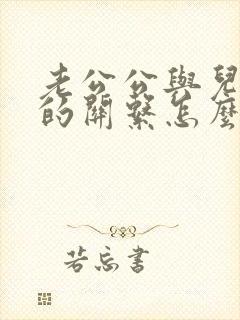 老公公與兒
的關繫怎麼
若忘書